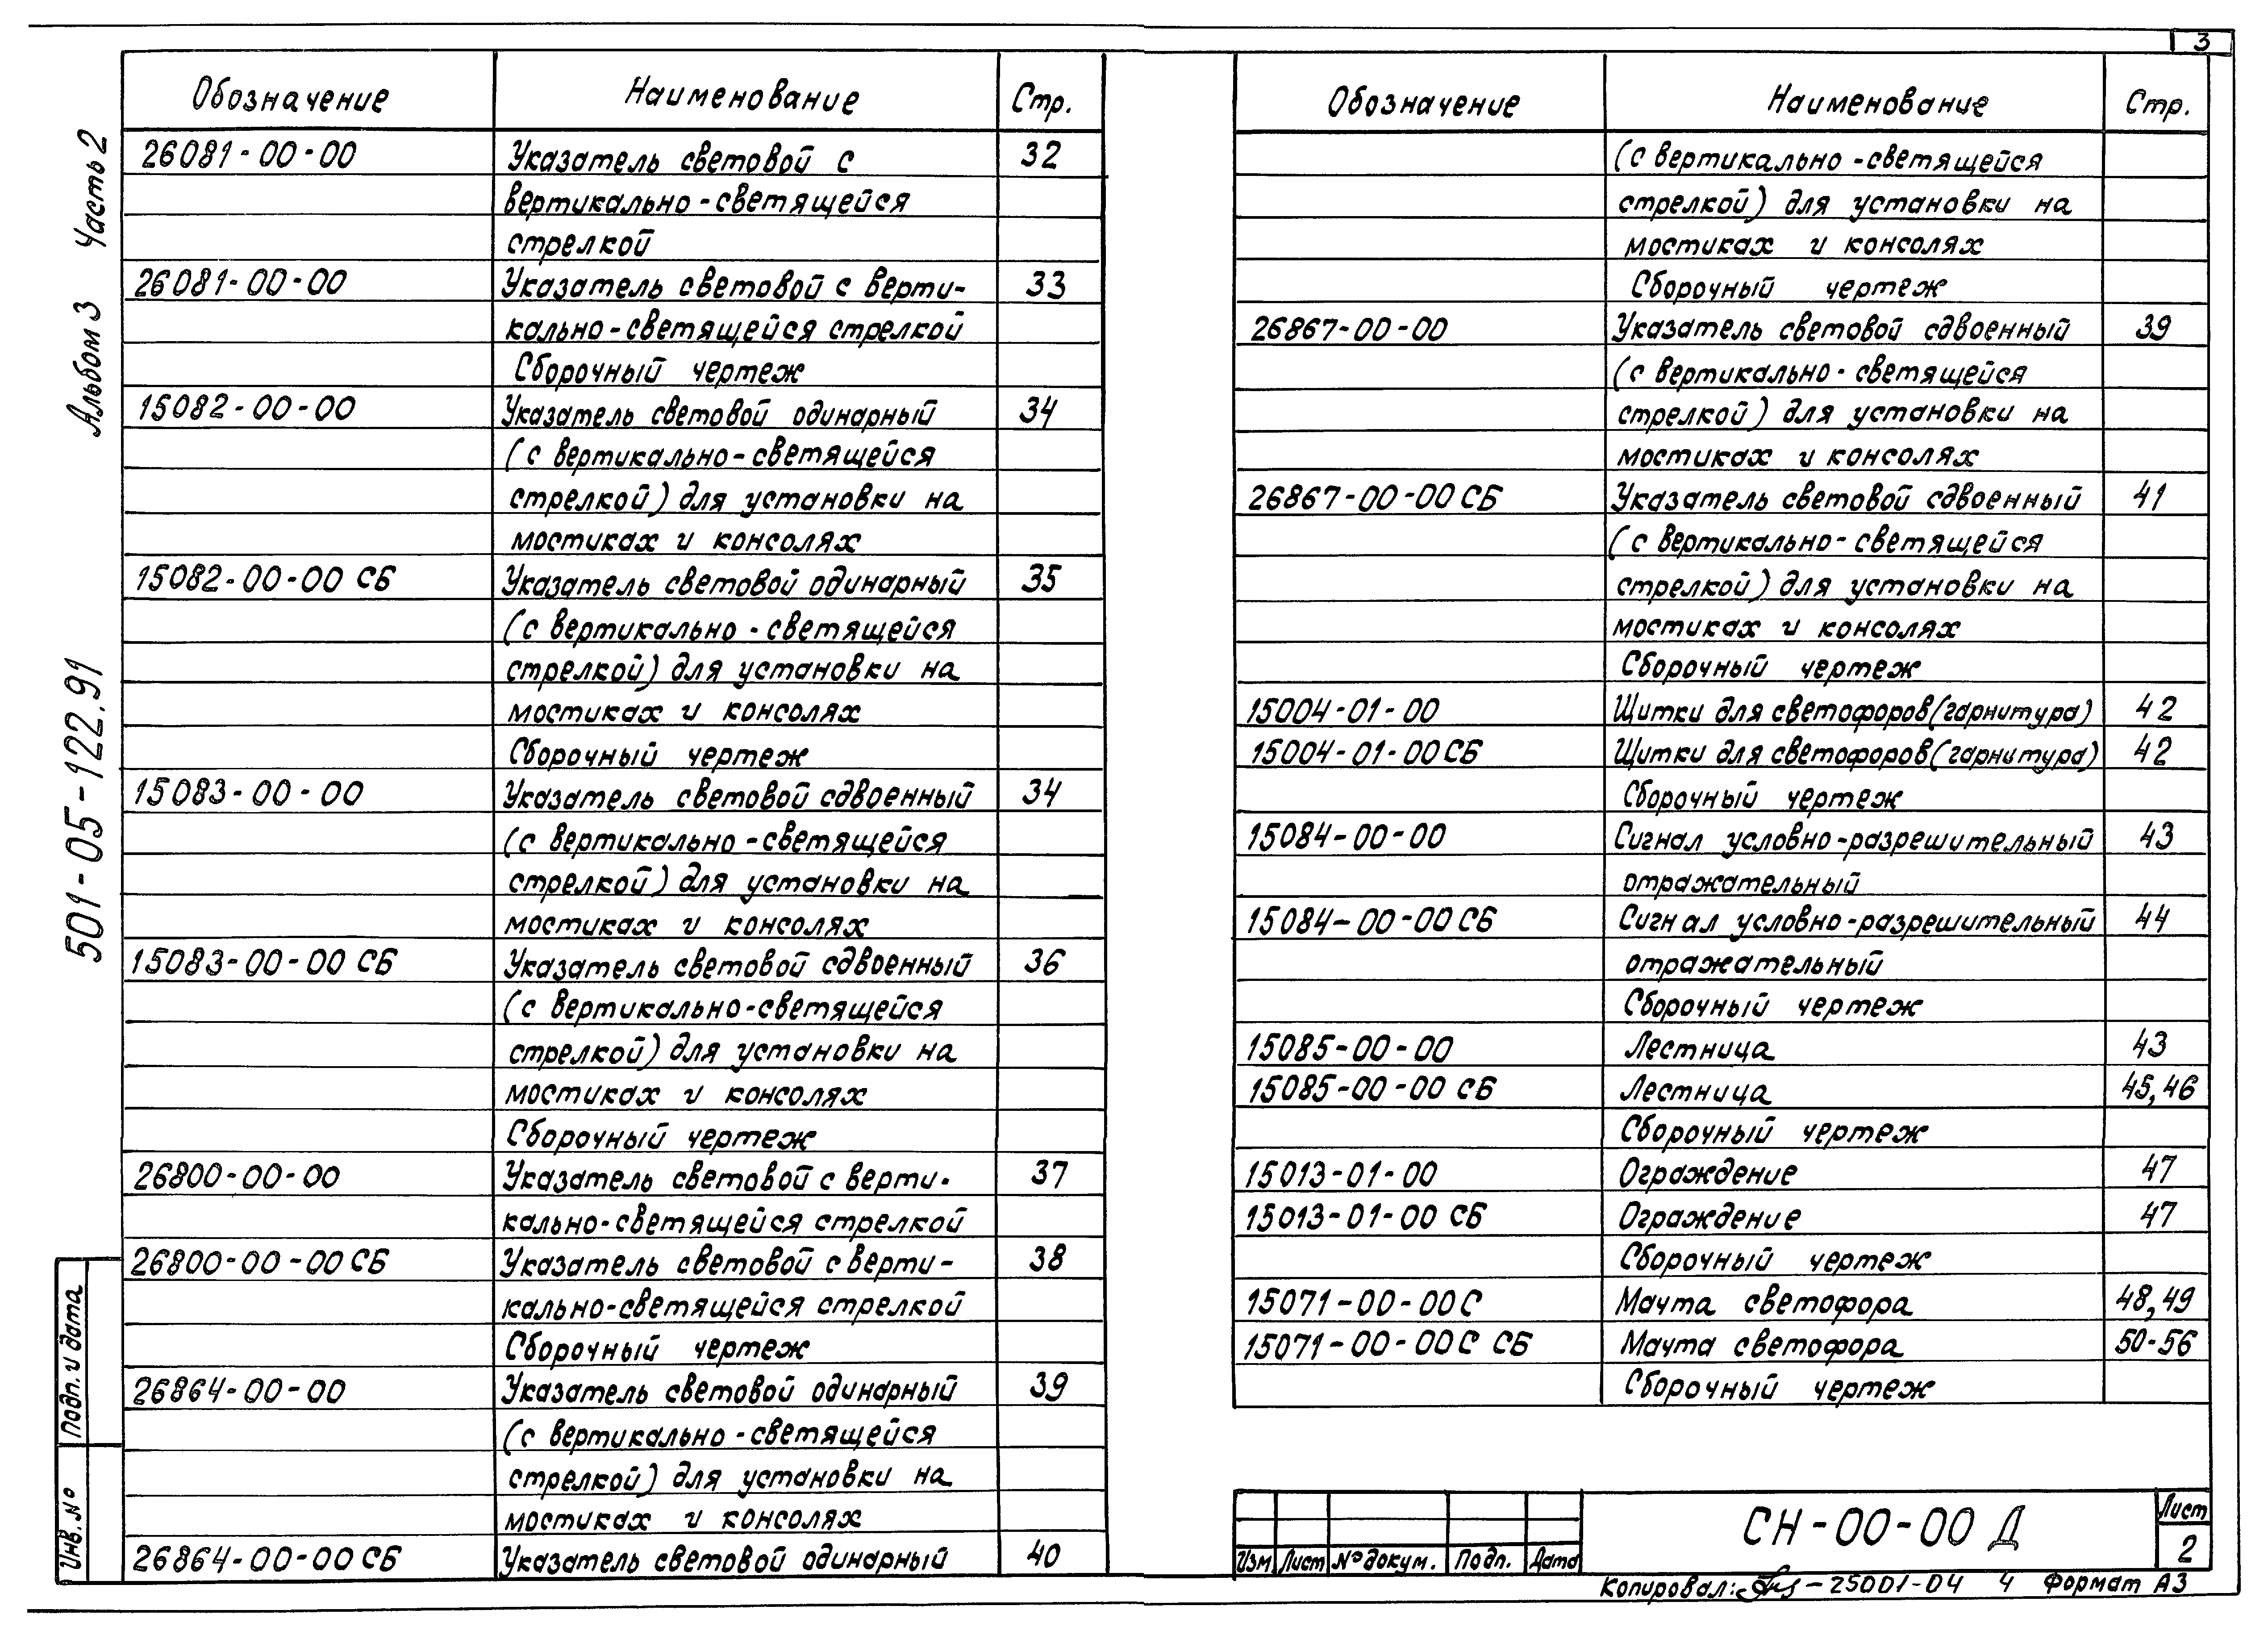 3
Альбом 3 Часть 2
501-05-122.91
Обозначение Наименование Стр.
26081-00-00 Указатель световой с 32
вертикально-светящейся
стрелкой
26081-00-00 Указатель световой с верти- 33
кально-светящейся стрелкой
Сборочный чертеж
15082-00-00 Указатель световой одинарный 34
(с вертикально-светящейся
стрелкой) для установки на
мостиках и консолях
15082-00-00 СБ Указатель световой одинарный 35
(с вертикально-светящейся
стрелкой) для установки на
мостиках и консолях
Сборочный чертеж
15083-00-00 Указатель световой сдвоенный 34
(с вертикально-светящейся
стрелкой) для установки на
мостиках и консолях
15083-00-00 СБ Указатель световой сдвоенный 36
(с вертикально-светящейся
стрелкой) для установки на
мостиках и консолях
Сборочный чертеж
26800-00-00 Указатель световой с верти- 37
кально-светящейся стрелкой
26800-00-00 СБ Указатель световой с верти- 38
кально-светящейся стрелкой
Сборочный чертеж
26864-00-00 Указатель световой одинарный 39
(с вертикально-светящейся
стрелкой) для установки на
мостиках и консолях
26864-00-00 СБ Указатель световой одинарный 40
Обозначение Наименование Стр.
(с вертикально-светящейся
стрелкой) для установки на
мостиках и консолях
Сборочный чертеж
26867-00-00 Указатель световой сдвоенный 39
(с вертикально-светящейся
стрелкой) для установки на
мостиках и консолях
26867-00-00 СБ Указатель световой сдвоенный 41
(с вертикально-светящейся
стрелкой) для установки на
мостиках и консолях
Сборочный чертеж
15004-01-00 Щитки для светофоров (гарнитура) 42
15004-01-00 СБ Щитки для светофоров (гарнитура) 42
Сборочный чертеж
15084-00-00 Сигнал условно-разрешительный 43
отражательный
15084-00-00 СБ Сигнал условно-разрешительный 44
отражательный
Сборочный чертеж
15085-00-00 Лестница 43
15085-00-00 СБ Лестница 45,46
Сборочный чертеж
15013-01-00 Ограждение 47
15013-01-00 СБ Ограждение 47
Сборочный чертеж
15071-00-00 С Мачта светофора 48,49
15071-00-00 С СБ Мачта светофора 50-56
Сборочный чертеж
Подп. и дата
Инв. №
Изм. Лист № докум. Подп. Дата
СН-00-00 Д
Лист
2
Копировал: - 25001-04 4 Формат А3